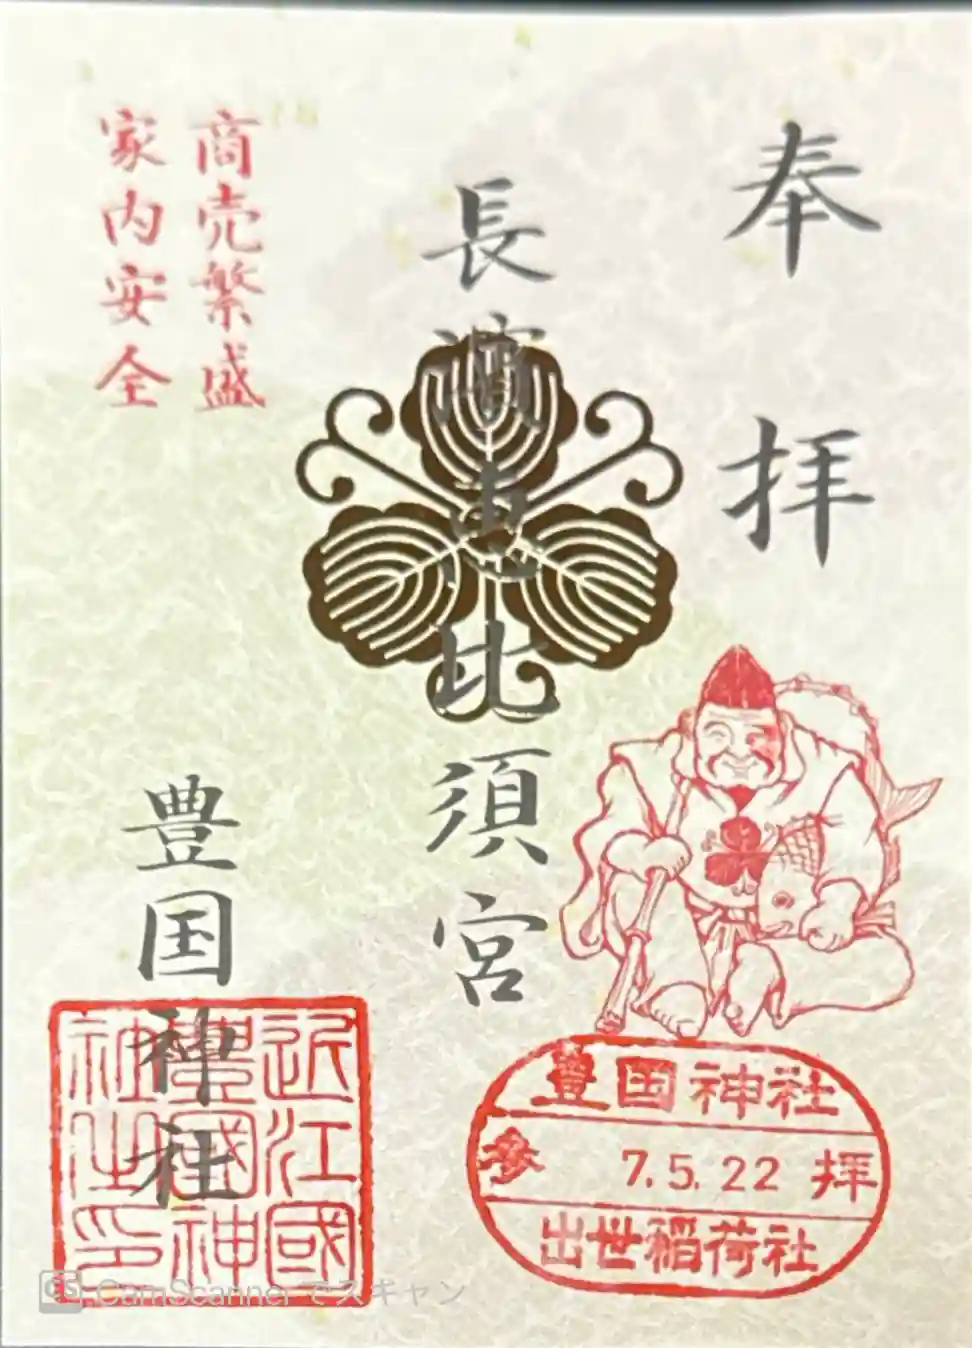 奉拝
長濱恵比須宮
商売繁盛
家内安全
豊国神社
近江國
豊國神
社之印
豊国神社
参 7.5.22 拝
出世稲荷社
CS CamScanner でスキャン